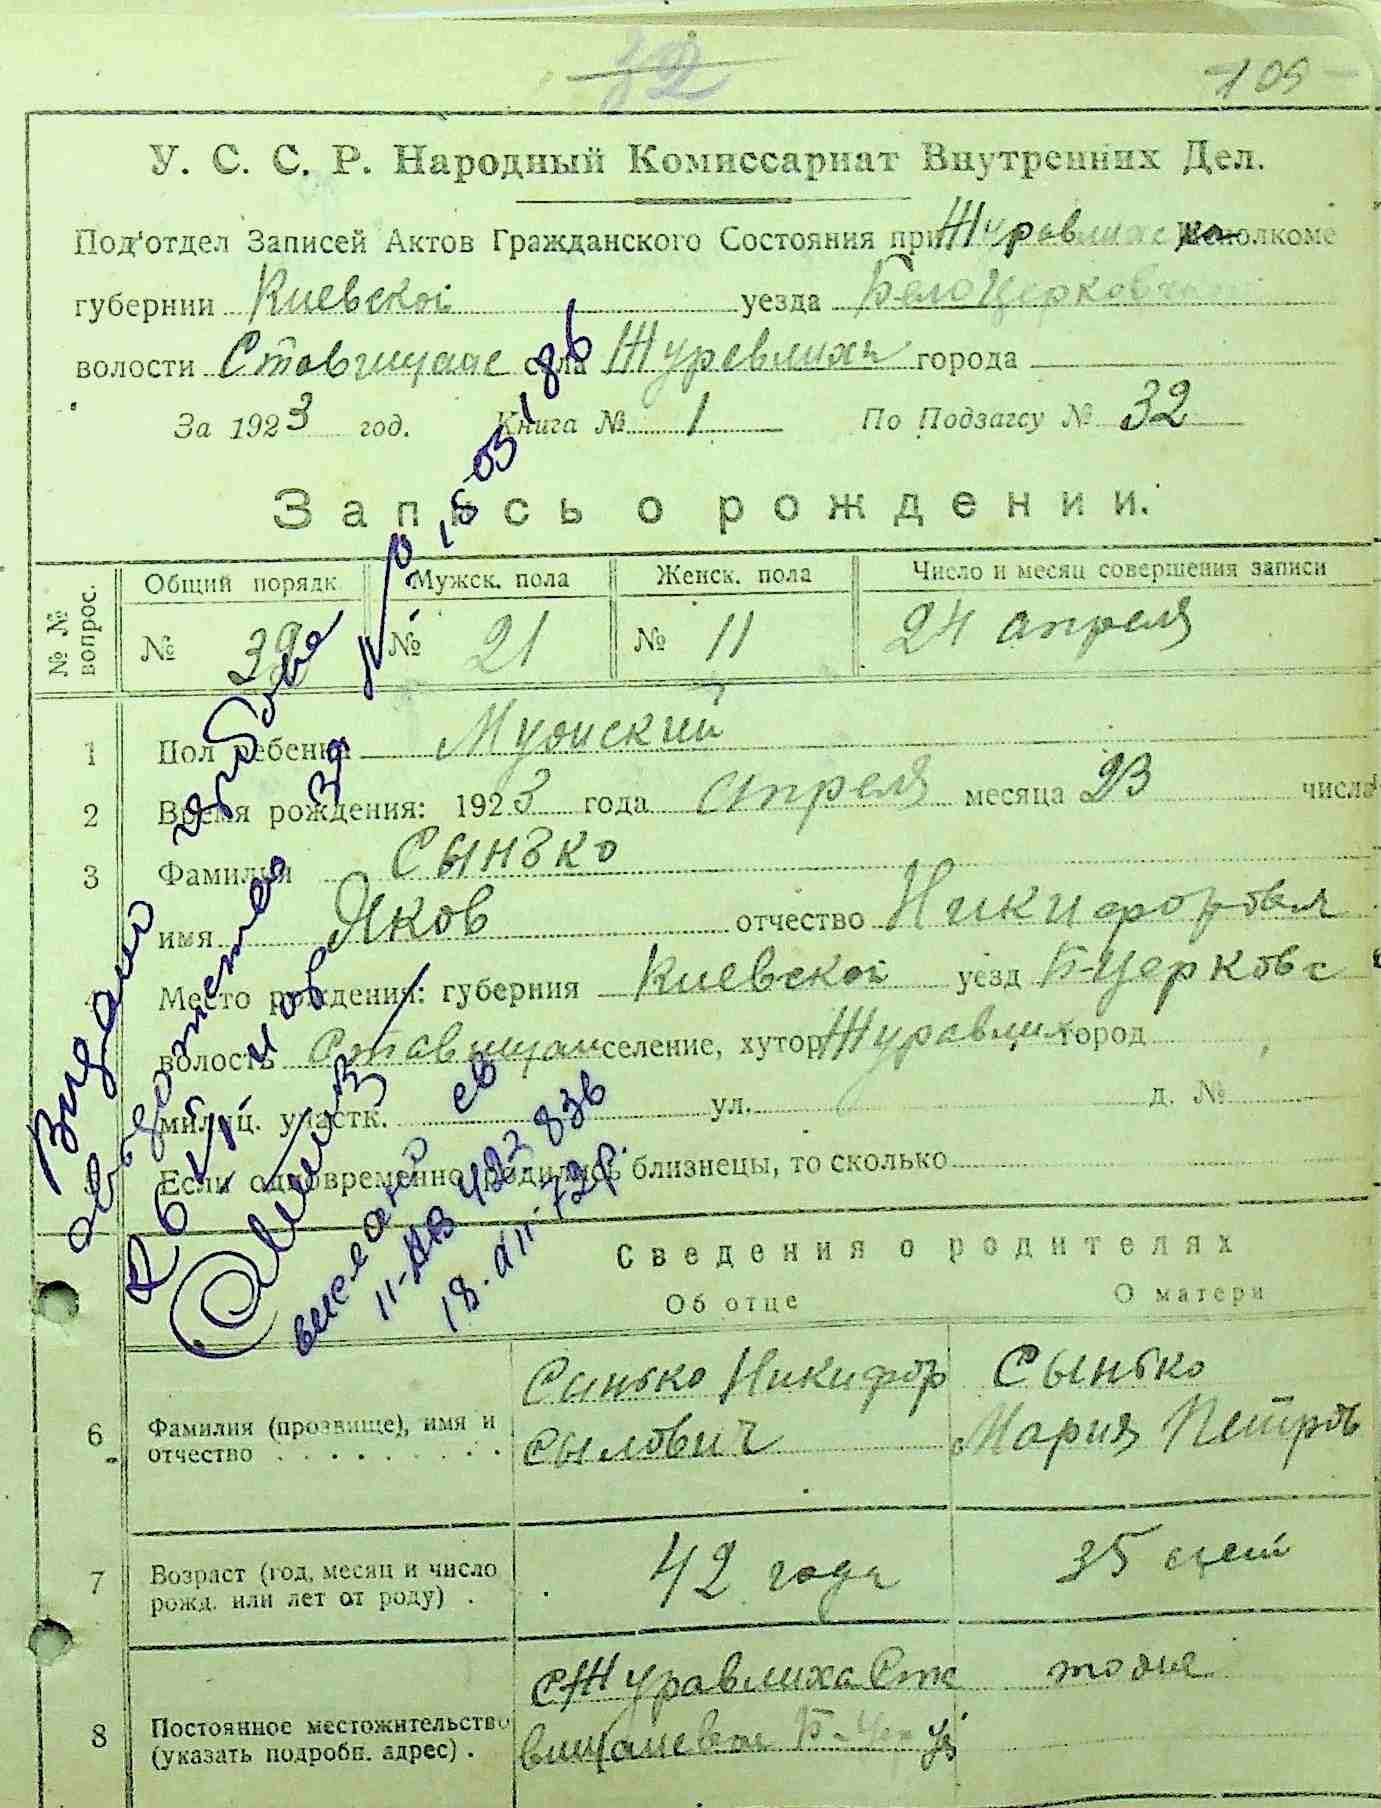 32
-109-
У. С. С. Р. Народный Комиссариат Внутренних Дел.
Под'отдел Записей Актов Гражданского Состояния при Исполкоме
губернии Киевской уезда Белоцерковского
волости села Журавлиха города
За 1923 год. Книга № 1 По Подзагсу № 32
Запись о рождении.
№ № вопрос.
Общий порядк. Мужск. пола Женск. пола Число и месяц совершения записи
№ 32 № 21 № 11 24 апреля
1 Пол ребенка Мужский
2 Время рождения: 1923 года апреля месяца 23 числа
3 Фамилия Сынько
имя Яков отчество
Место рождения: губерния Киевской уезд Б-Церковс
волость селение, хутор город
милиц. участк. ул. д. №
Если одновременно родились близнецы, то сколько
Сведения о родителях
Об отце О матери
6 Фамилия (прозвище), имя и отчество
Синько Никифор Сылович
Сынько Мария Петров
7 Возраст (год, месяц и число рожд. или лет от роду) .
42 года
35 лет
8 Постоянное местожительство (указать подробн. адрес) .
с Журавлиха
тоже
Видано
за № 1503186
II-АВ 422836